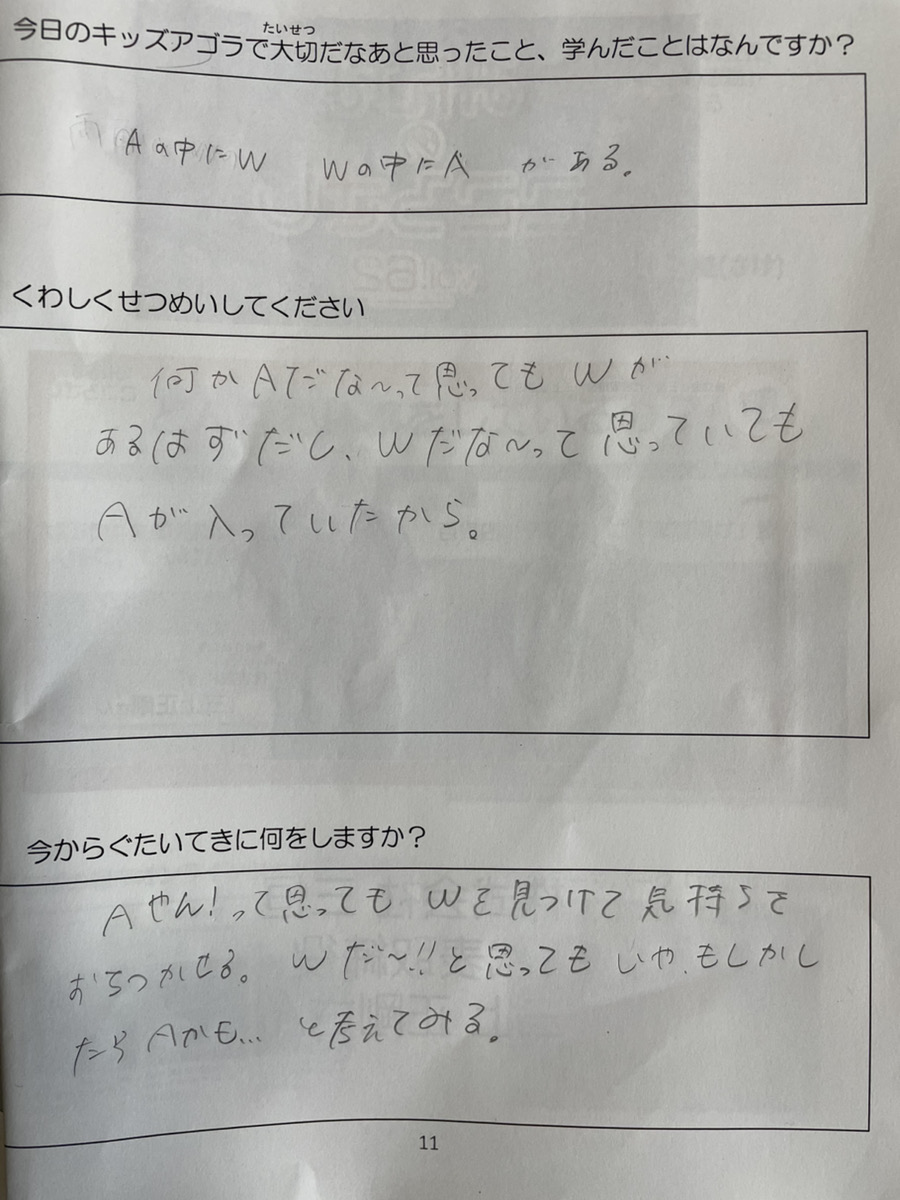 今日のキッズアゴラで大切だなあと思ったこと、学んだことはなんですか？
たいせつ
Aの中にW　Wの中にA　がある。
くわしくせつめいしてください
何かAだな〜って思ってもWが
あるはずだし、Wだな〜って思っていても
Aが入っていたから。
今からぐたいてきに何をしますか？
Aやん！って思ってもWを見つけて気持ちを
おちつかせる。Wだ〜!!と思ってもいや、もしかし
たらAかも…と考えてみる。
11